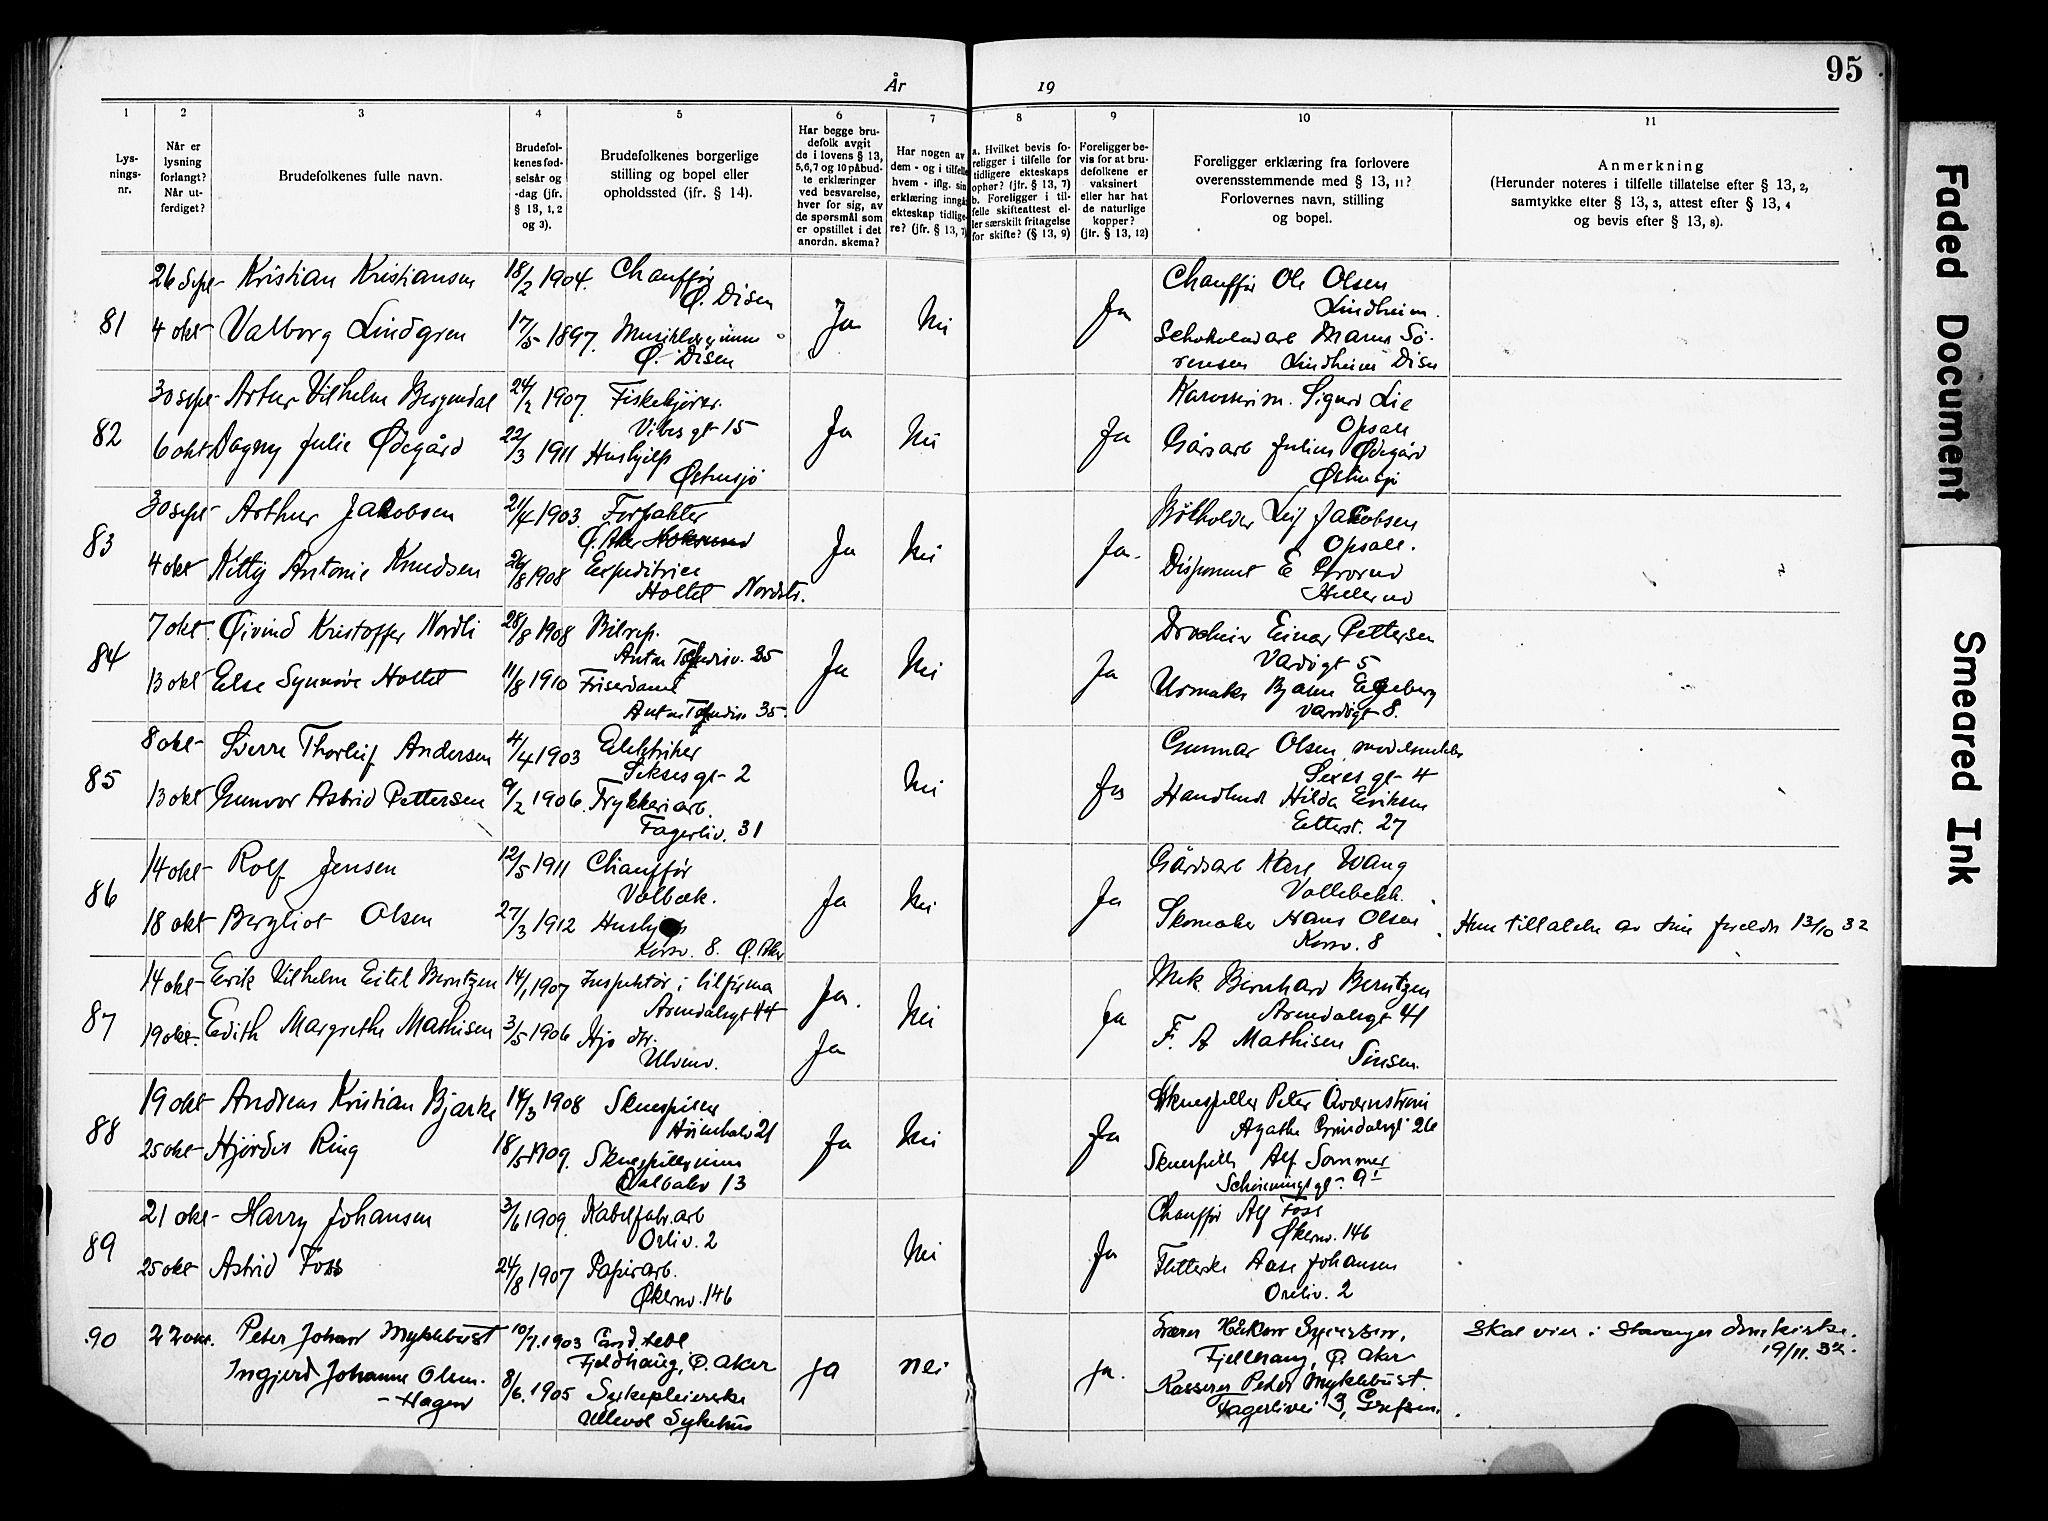 95
År 19
1 2 3 4 5 6 7 8 9 10 11
Lys-
nings-
nr.
Når er
lysning
forlangt?
Når ut-
ferdiget?
Brudefolkenes fulle navn.
Brudefol-
kenes fød-
selsår og
-dag (jfr.
§ 13, 1, 2
og 3).
Brudefolkenes borgerlige
stilling og bopel eller
opholdssted (jfr. § 14).
Har begge bru-
defolk avgit
de i lovens § 13,
5, 6, 7 og 10 påbud-
te erklæringer
ved besvarelse,
hver for sig, av
de spørsmål som
er opstillet i det
anordn. skema?
Har nogen av
dem - og i tilfelle
hvem - iflg. sin
erklæring inngåt
ekteskap tidlige-
re? (jfr. § 13, 7)
a. Hvilket bevis fo-
religger i tilfelle for
tidligere ekteskaps
ophør? (jfr. § 13, 7)
b. Foreligger i til-
felle skifteattest el-
ler særskilt fritagelse
for skifte? (§ 13, 9)
Foreligger be-
vis for at bru-
defolkene er
vaksinert
eller har hat
de naturlige
kopper?
(jfr. § 13, 12)
Foreligger erklæring fra forlovere
overensstemmende med § 13, 11?
Forlovernes navn, stilling
og bopel.
Anmerkning
(Herunder noteres i tilfelle tillatelse efter § 13, 2,
samtykke efter § 13, 3, attest efter § 13, 4
og bevis efter § 13, 8).
81
26 Sept Kristian Kristiansen 18/2 1904. Chauffør
Ø. Disen
4 okt Valborg Lindgren 17/5 1897.
Ø. Disen
Ja Nei Ja
Chauffør Ole Olsen
Lindheim.
Sö-
rensen Lindheim Disen
82
30 sept Artur Vilhelm Bergendal 24/2 1907. Fiskekjører.
Vibes gt 15
6 okt Dagny Julie Ødegård 22/3 1911 Hushjelp
Østensjø
Ja Nei Ja
Sigurd Lie
Opsal
Gårsarb Julius Ødegård
Østensjø
83
30 sept Arthur Jakobsen 21/4 1903. Forpakter
Ø. Aker
4 okt Kitty Antonie Knudsen 26/8 1908 Expeditrice
Holtet Nordstr.
Ja Nei Ja.
Leif Jakobsen
Opsal.
Disponent E
Hellerud
84
7 okt Øivind Kristoffer Nordli 28/8 1908 Bilrep.
35
13 okt Else Synnøve Holtet 11/8 1910 Friserdame
35.
Ja Nei Ja
Einar Pettersen
Vardøgt 5
Urmaker Bjarne Egeberg
Vardøgt 8.
85
8 okt Sverre Thorleif Andersen 4/4 1903 Elektriker
Seksesgt 2
13 okt Gunvor Astrid Pettersen 9/2 1906. Trykkeriarb.
Fagerliv. 31
Nei Ja
Gunnar Olsen
Sexes gt 4
Hilda Eriksen
Etterst. 27
86
14 okt Rolf Jensen 12/5 1911 Chauffør
Valbæk.
18 okt Bergliot Olsen 27/3 1912
Korsv. 8. Ø. Aker
Ja Nei Ja
Gårdsarb Karl Wang
Vollebekk.
Skomaker Hans Olsen
Korsv. 8
Hun tillatelse av sine foreldre 13/10 32
87
14 okt Erik Vilhelm Eitel Berntzen 14/1 1907 Inspektør i
Arendalsgt 44
19 okt. Edith Margrethe Mathisen 3/5 1906 Hjv dtr.
Ulvenv.
Ja. Nei Ja
Ja
Mek. Bernhard Berntzen
Arendalsgt 41
F. A Mathisen
Sinsen.
88
19 okt Andreas Kristian Bjarke 14/3 1908 Skuespiller
21
25 okt Hjørdis Ring 18/5 1909. Skuespillerinne
13
Ja Nei Ja
Skuespiller Peter
Agathe Grøndalsgt 26
Skuespiller Alf Sommer
Schøningsgt. 9 I
89
21 okt Harry Johansen 3/6 1909. Kabelfabr.arb
Orliv. 2
25 okt Astrid Foss 24/8 1907 Papirarb.
Økernv. 146
Nei Ja
Chauffør Alf Foss
Økernv. 146
Fletterske Aase Johansen
Oreliv. 2
90
22 okt. Peter Johan Myklebust 10/7. 1903 Cand. teol
Fjeldhaug, Ø. Aker
Ingjerd Johanne Olsen
-Hagen 8/6. 1905 Sykepleierske
Ullevol Sykehus
ja nei ja.
Lærer Håkon
Fjellhaug, Ø. Aker
Kasserer Peder Myklebust.
Fagerlivei 3, Grefsen.
Skal vies i Stavanger domkirke.
19/11. 32.
Faded Document
Smeared Ink